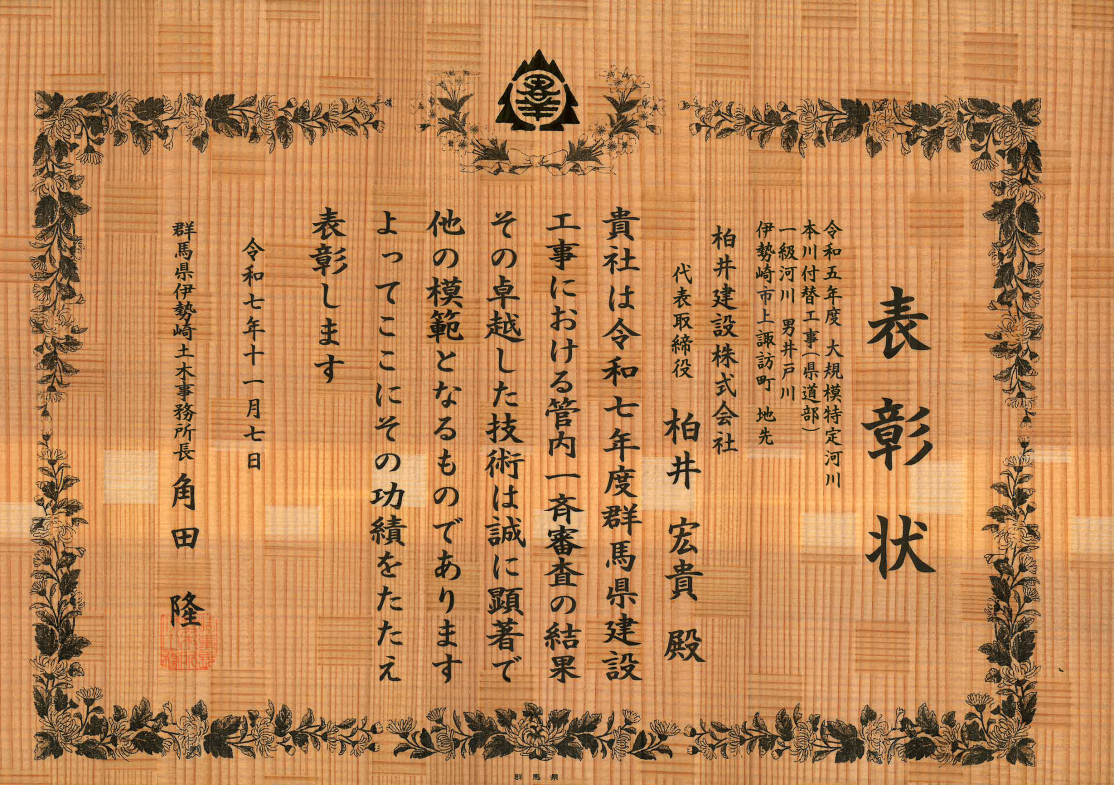 表彰状
令和五年度 大規模特定河川
本川付替工事(県道部)
一級河川 男井戸川
伊勢崎市上諏訪町 地先
柏井建設株式会社
代表取締役 柏井 宏貴 殿
貴社は令和七年度群馬県建設
工事における管内一斉審査の結果
その卓越した技術は誠に顕著で
他の模範となるものであります
よってここにその功績をたたえ
表彰します
令和七年十一月七日
群馬県伊勢崎土木事務所長 角田 隆
群馬県